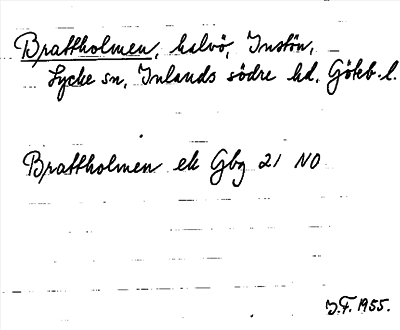 Brattholmen, halvö, Instön,
Lycke sn, Inlands södre hd, Göteb. l.
Brattholmen ek Gbg 21 NO
J.F. 1955.